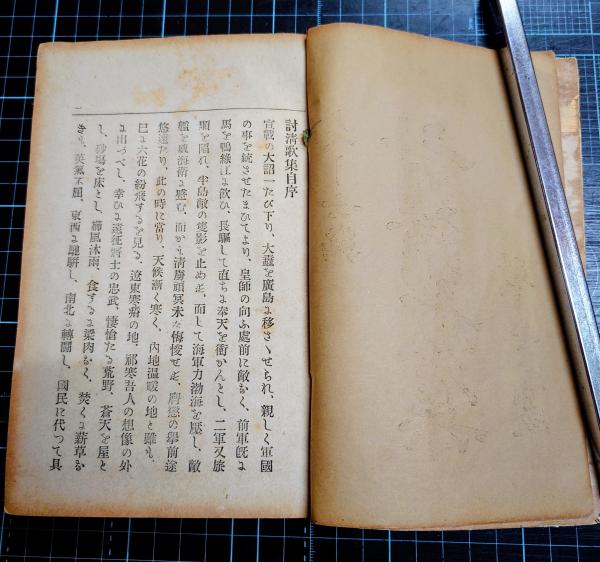 討清歌集自序
宣戰の大詔一たび下り、大纛を廣島に移させられ、親しく軍國
の事を統させたまひてより、皇師の向ふ處前に敵なく、前軍既に
馬を鴨綠江に飮ひ、長驅して直ちに奉天を衝かんとし、二軍又旅
順を陷れ、半島敵の隻影を止めず、而して海軍力渤海を壓し、敵
艦を威海衛に蹙む、而かも淸虜頑冥未た悔悛せず、膺懲の擧前途
悠遠たり、此の時に當り、天候漸く寒く、內地溫暖の地と雖も、
巳に六花の紛飛するを見る、遼東寒瘠の地、祁寒吾人の想像の外
に出つべし、幸ひに遠征將士の忠武、悽愴たる荒野、蒼天を屋と
し、砂場を床とし、櫛風沐雨、食するに粱肉なく、焚くに薪草な
きも、英氣不屈、東西に馳騁し、南北に轉鬪し、國民に代つて具
一